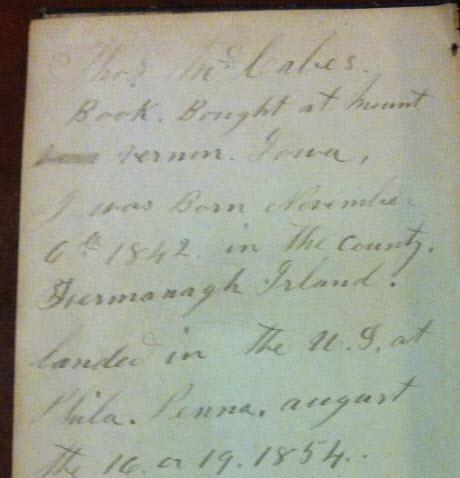 Thos. McCabes.
Book. Bought at Mount
vernon. Iowa,
I was Born November
6th 1842. in the County.
Fuermanagh Irland.
landed in the U.S. at
Phila. Penna. august
the 16. or 19. 1854.